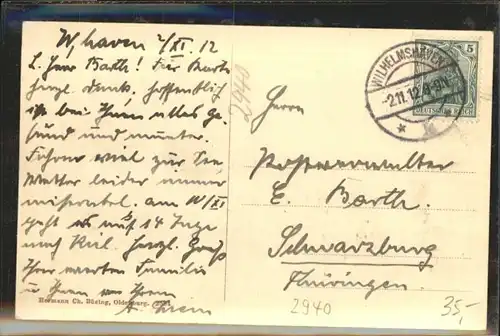 W'haven 2/XI. 12
L. Herr Barth! Für Karte
herzl. Dank, hoffentlich
ist bei Ihnen alles ge-
sund und munter.
Fahren viel zur See,
Wetter leider immer
miserabel. Am 10/XI
geht es auf 14 Tage
nach Kiel. Herzl. Gruß
Ihrer werten Familie
u. Ihnen von Ihrem
Hermann Ch. Büsing, Oldenburg.
2940
WILHELMSHAVEN
-2.11.12.8-9N.
5
DEUTSCHES REICH
Herrn
Postverwalter
E. Barth.
Schwarzburg
Thüringen.
2940
35,-